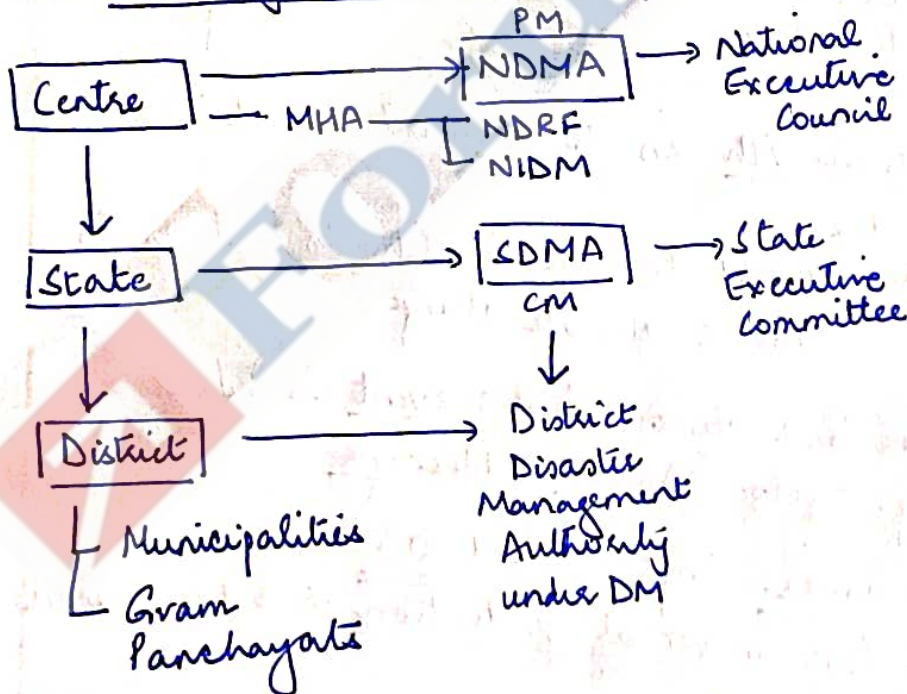 PM
Centre
NDMA
National
Executive
Council
MHA
NDRF
NIDM
State
SDMA
State
Executive
Committee
CM
District
District
Disaster
Management
Authority
under DM
Municipalities
Gram
Panchayats